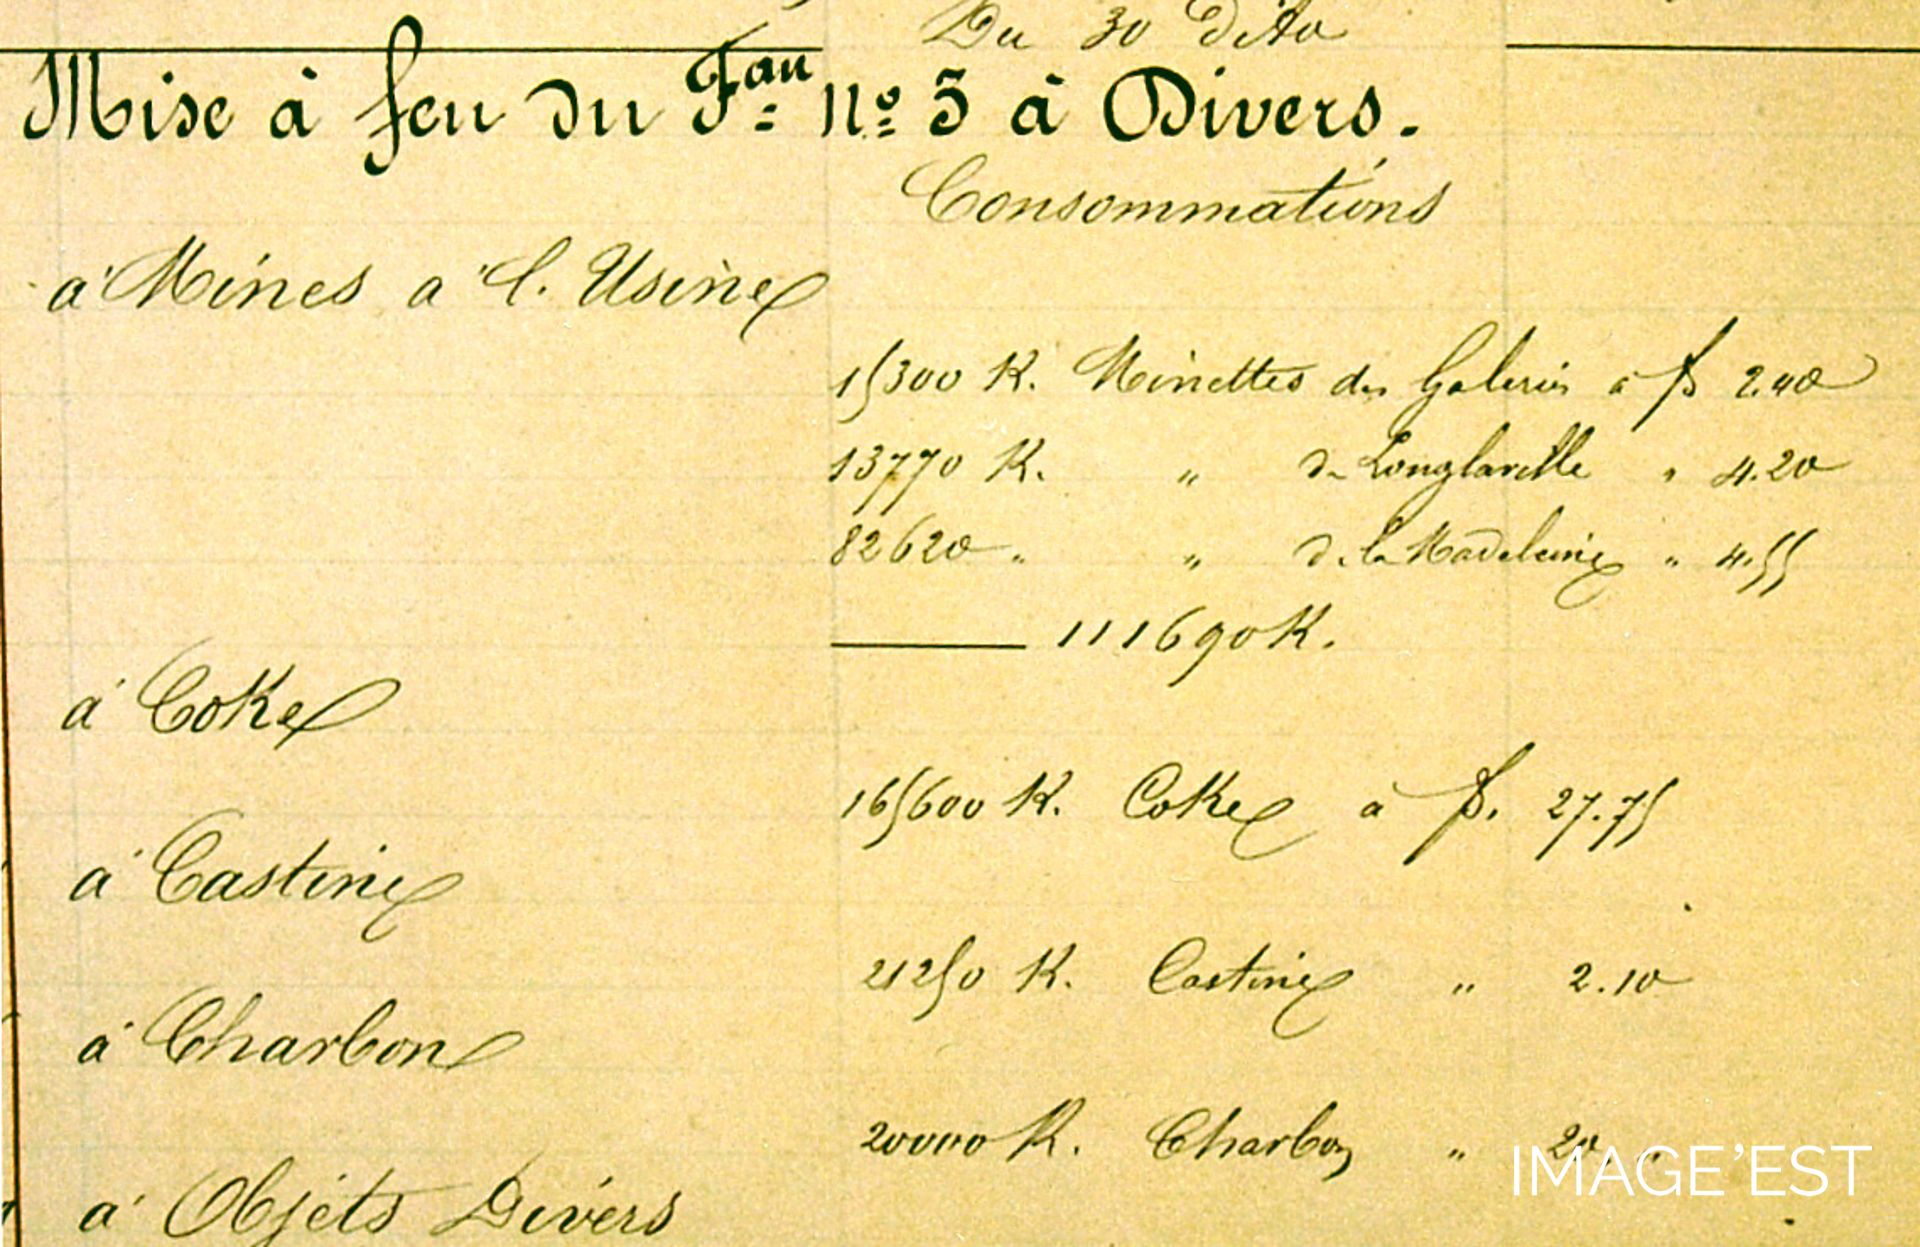 Du 30 dito
Mise à feu du Fau nº 5 à Divers.
Consommations
à Mines a l. Usine
15300 K. Minettes des Galeries à f 2.40
13770 K. " de Longlaville " 4.20
82620 " " de la Madeleine " 4.55
111690 K.
à Coke
165600 K. Coke à f. 27.75
à Castine
21250 K. Castine " 2.10
à Charbon
20000 K. Charbon " 20. "
à Objets Divers
IMAGE'EST